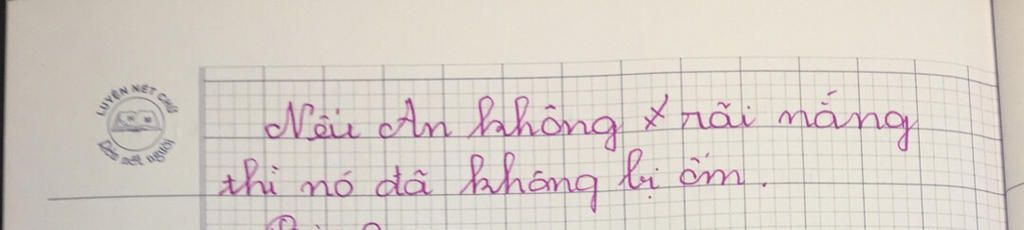 LUYỆN NÉT CHỮ
Rèn nết người
Nếu An không x rãi nắng
thì nó đã không bị ốm.